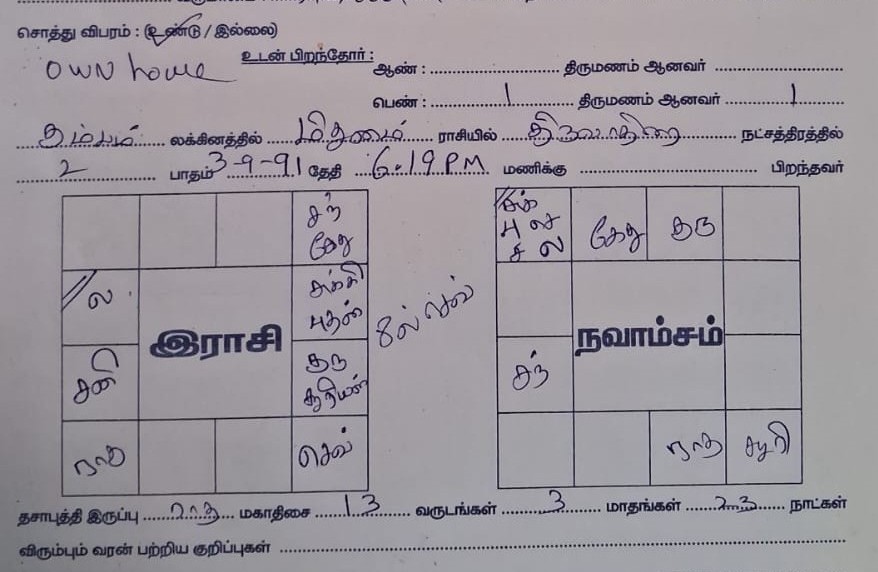 சொத்து விபரம் : (உண்டு / இல்லை)
own home உடன் பிறந்தோர் : ஆண் : திருமணம் ஆனவர்
பெண் : 1 திருமணம் ஆனவர் 1
கும்பம் லக்கினத்தில் மிதுனம் ராசியில் திருவாதிரை நட்சத்திரத்தில்
2 பாதம் 3-9-91 தேதி 6.19 PM மணிக்கு பிறந்தவர்
சந்
கேது
ல
சுக்கி
புதன்
இராசி
சனி
குரு
சூரியன்
ராகு
செவ்
8ல் செவ்
கேது குரு
நவாம்சம்
சந்
ராகு சூரி
தசாபுத்தி இருப்பு ராகு மகாதிசை 13 வருடங்கள் 3 மாதங்கள் 23 நாட்கள்
விரும்பும் வரன் பற்றிய குறிப்புகள்